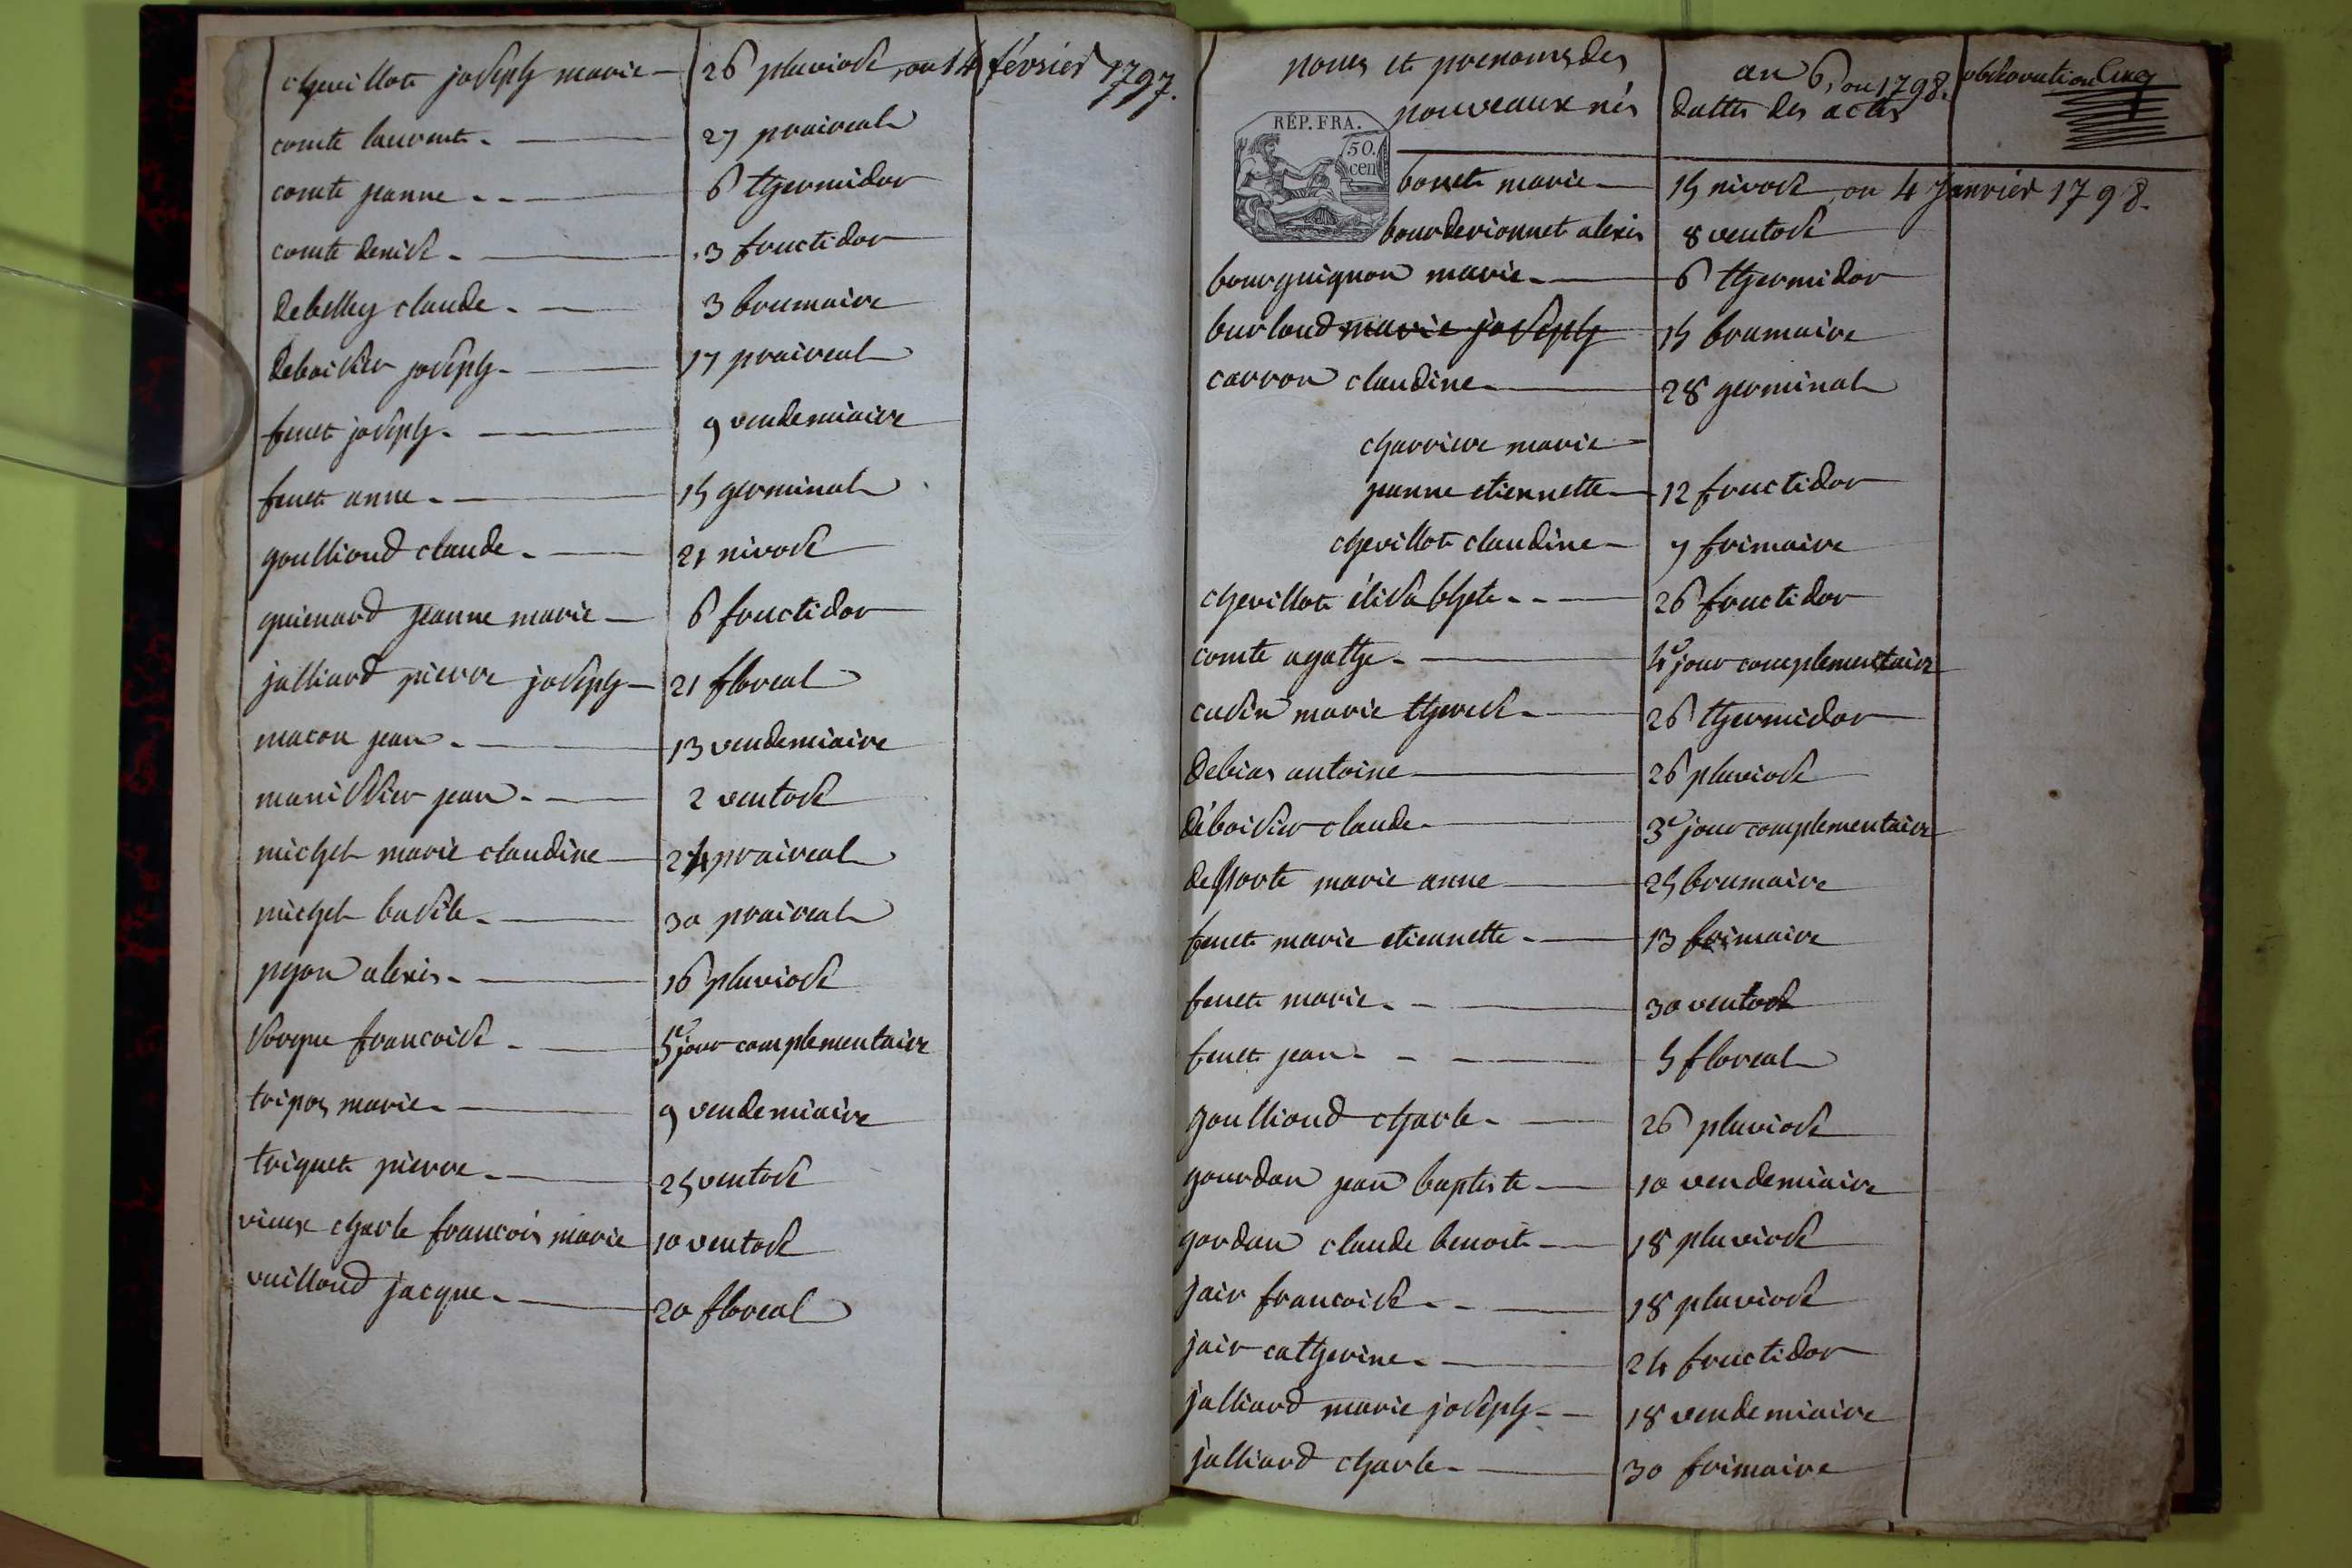 chevillot joseph marie — 26 pluviose, ou 14 février 1797.
comte laurent. — 27 praireal
comte jeanne . . — 6 thermidor
comte denise . — 3 fructidor
debelley claude . — 3 brumaire
deboissier joseph . — 17 praireal
fenet joseph . — 9 vendemiaire
fenet anne . — 15 germinal
goullioud claude . — 21 nivose
guienard jeanne marie — 6 fructidor
julliard pierre joseph — 21 floreal
macon jean . — 13 vendemiaire
manissier jean . — 2 ventose
michel marie claudine — 24 praireal
michel basile . — 30 praireal
pyon alexis . — 16 pluviose
francoise . — 5e jour complementaire
tripoz marie . — 9 vendemiaire
triquet pierre . — 25 ventose
vieux charle francois marie 10 ventose
vuilloud jacque . — 20 floreal
noms et prenoms des
nouveaux nés
an 6, ou 1798.
dattes des actes
observation cinq
RÉP. FRA.
50.
cen
bonet marie — 15 nivose, ou 4 janvier 1798.
bourderionnet alexis 8 ventose
bourguignon marie . — 6 thermidor
burloud marie joseph 15 brumaire
carron claudine . — 28 germinal
charriere marie —
jeanne etiennette — 12 fructidor
chevillot claudine — 7 frimaire
chevillot élisabhet . . — 26 fructidor
comte agathe . — 4e jour complementaire
cusin marie therese . — 26 thermidor
debias antoine — 26 pluviose
déboissier claude . — 3e jour complementaire
delporte marie anne — 25 brumaire
fenet marie etiennette . — 13 frimaire
fenet marie . . — 30 ventose
fenet jean . . — 5 floreal
goullioud charle . — 26 pluviose
gourdan jean baptiste — 10 vendemiaire
gordan claude benoit — 18 pluviose
jair francoise . . — 18 pluviose
jair catherine . — 24 fructidor
julliard marie joseph . — 18 vendemiaire
julliard charle . — 30 frimaire